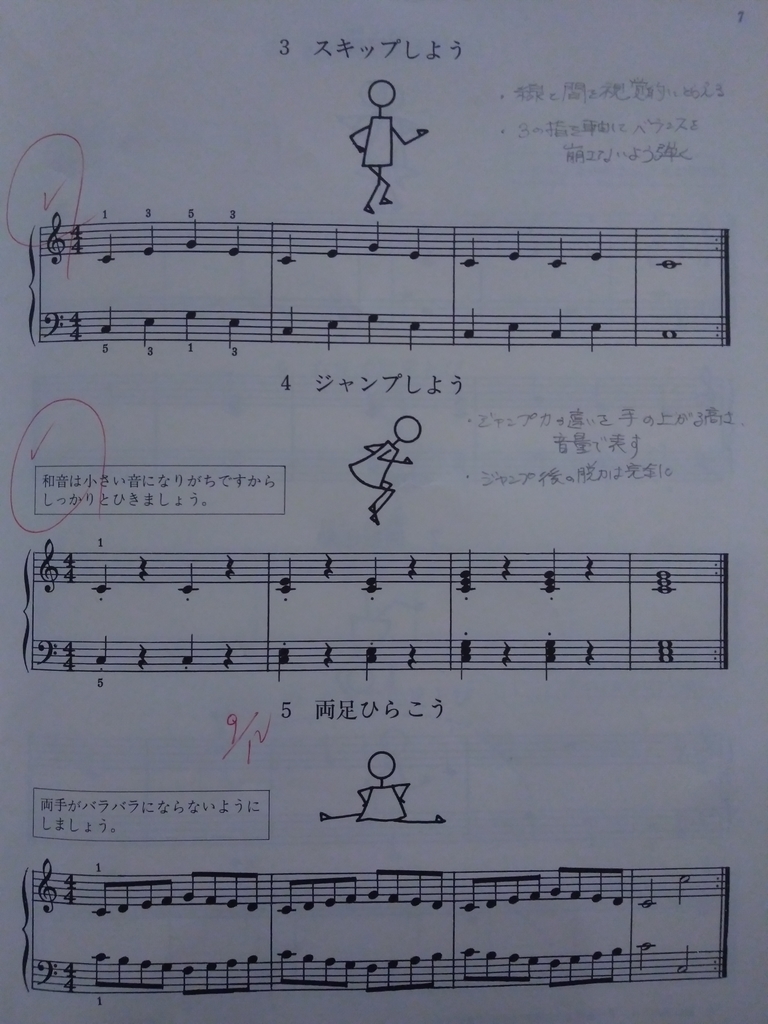 3 スキップしよう
・線と間を視覚的にとらえる
・3の指を軸にしてバランスを
崩さないよう弾く
1 3 5 3
5 3 1 3
4 ジャンプしよう
・ジャンプ力の違いを手の上がる高さ、
音量で表す
・ジャンプ後の脱力は完全に
和音は小さい音になりがちですから
しっかりとひきましょう。
1
5
5 両足ひらこう
9/12
両手がバラバラにならないように
しましょう。
1
1